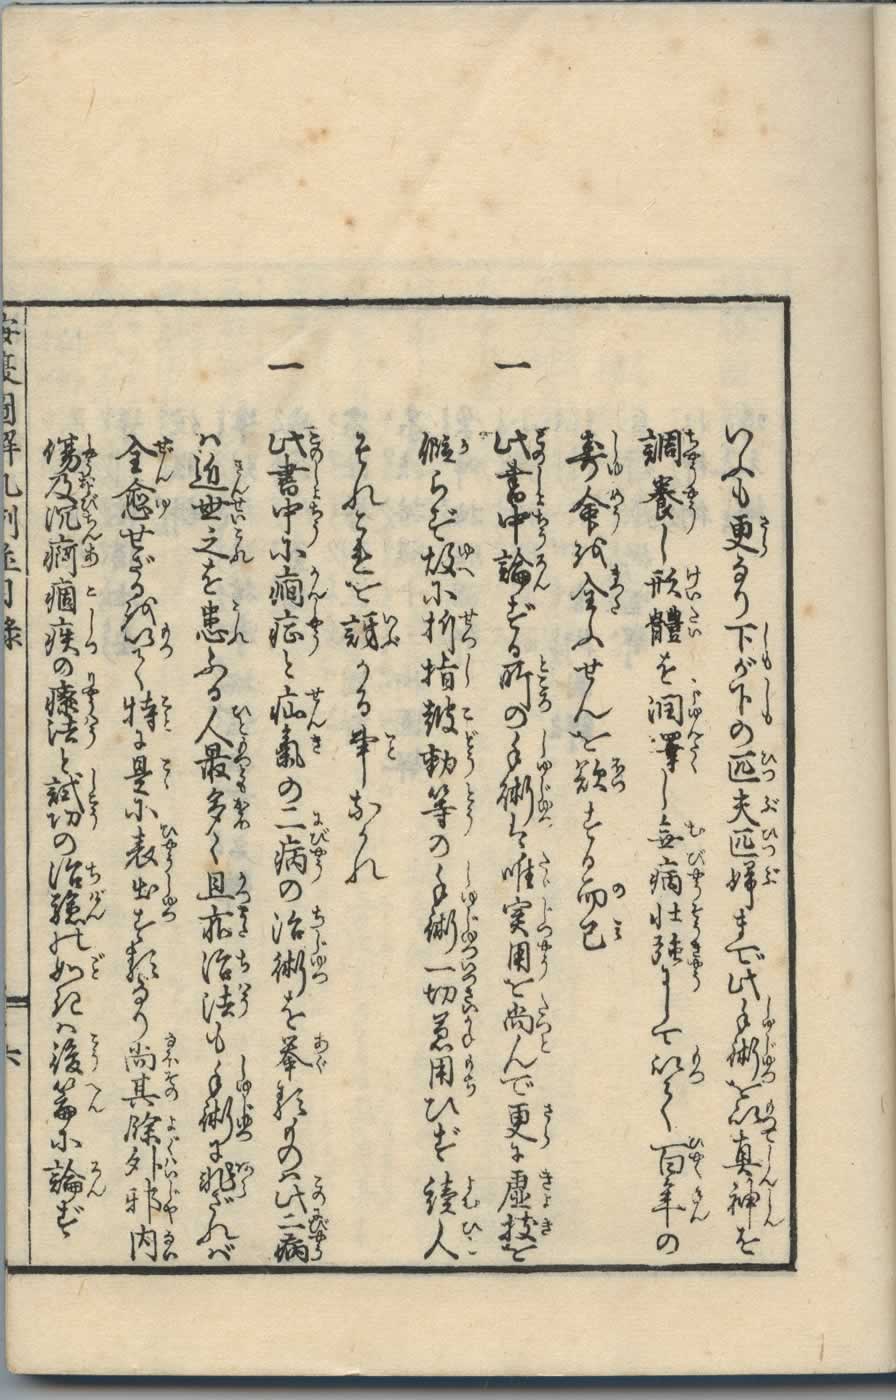 いふも更なり下が下の匹夫匹婦まで此手術を以真神を
調養し形體を潤澤し無病壮強にして以て百年の
寿命を全ふせんを欲するのみ而已
一 此書中論ずる所の手術は唯実用を尚んで更に虚技を
假らず故に折指皷動等の手術一切為用ひず読人
それこれを訝かる事なかれ
一 此書中に癇症と疝氣の二病の治術を挙るものハ此二病
ハ近世之を患ふる人最多く且亦治法も手術に非ざれバ
全愈せざるを以て特に是に表出する類なり尚其除外邪内
傷及沉痾痼疾の療法と試功の治驗の如きハ後篇に論ず
按腹圖解凡例並目録
六